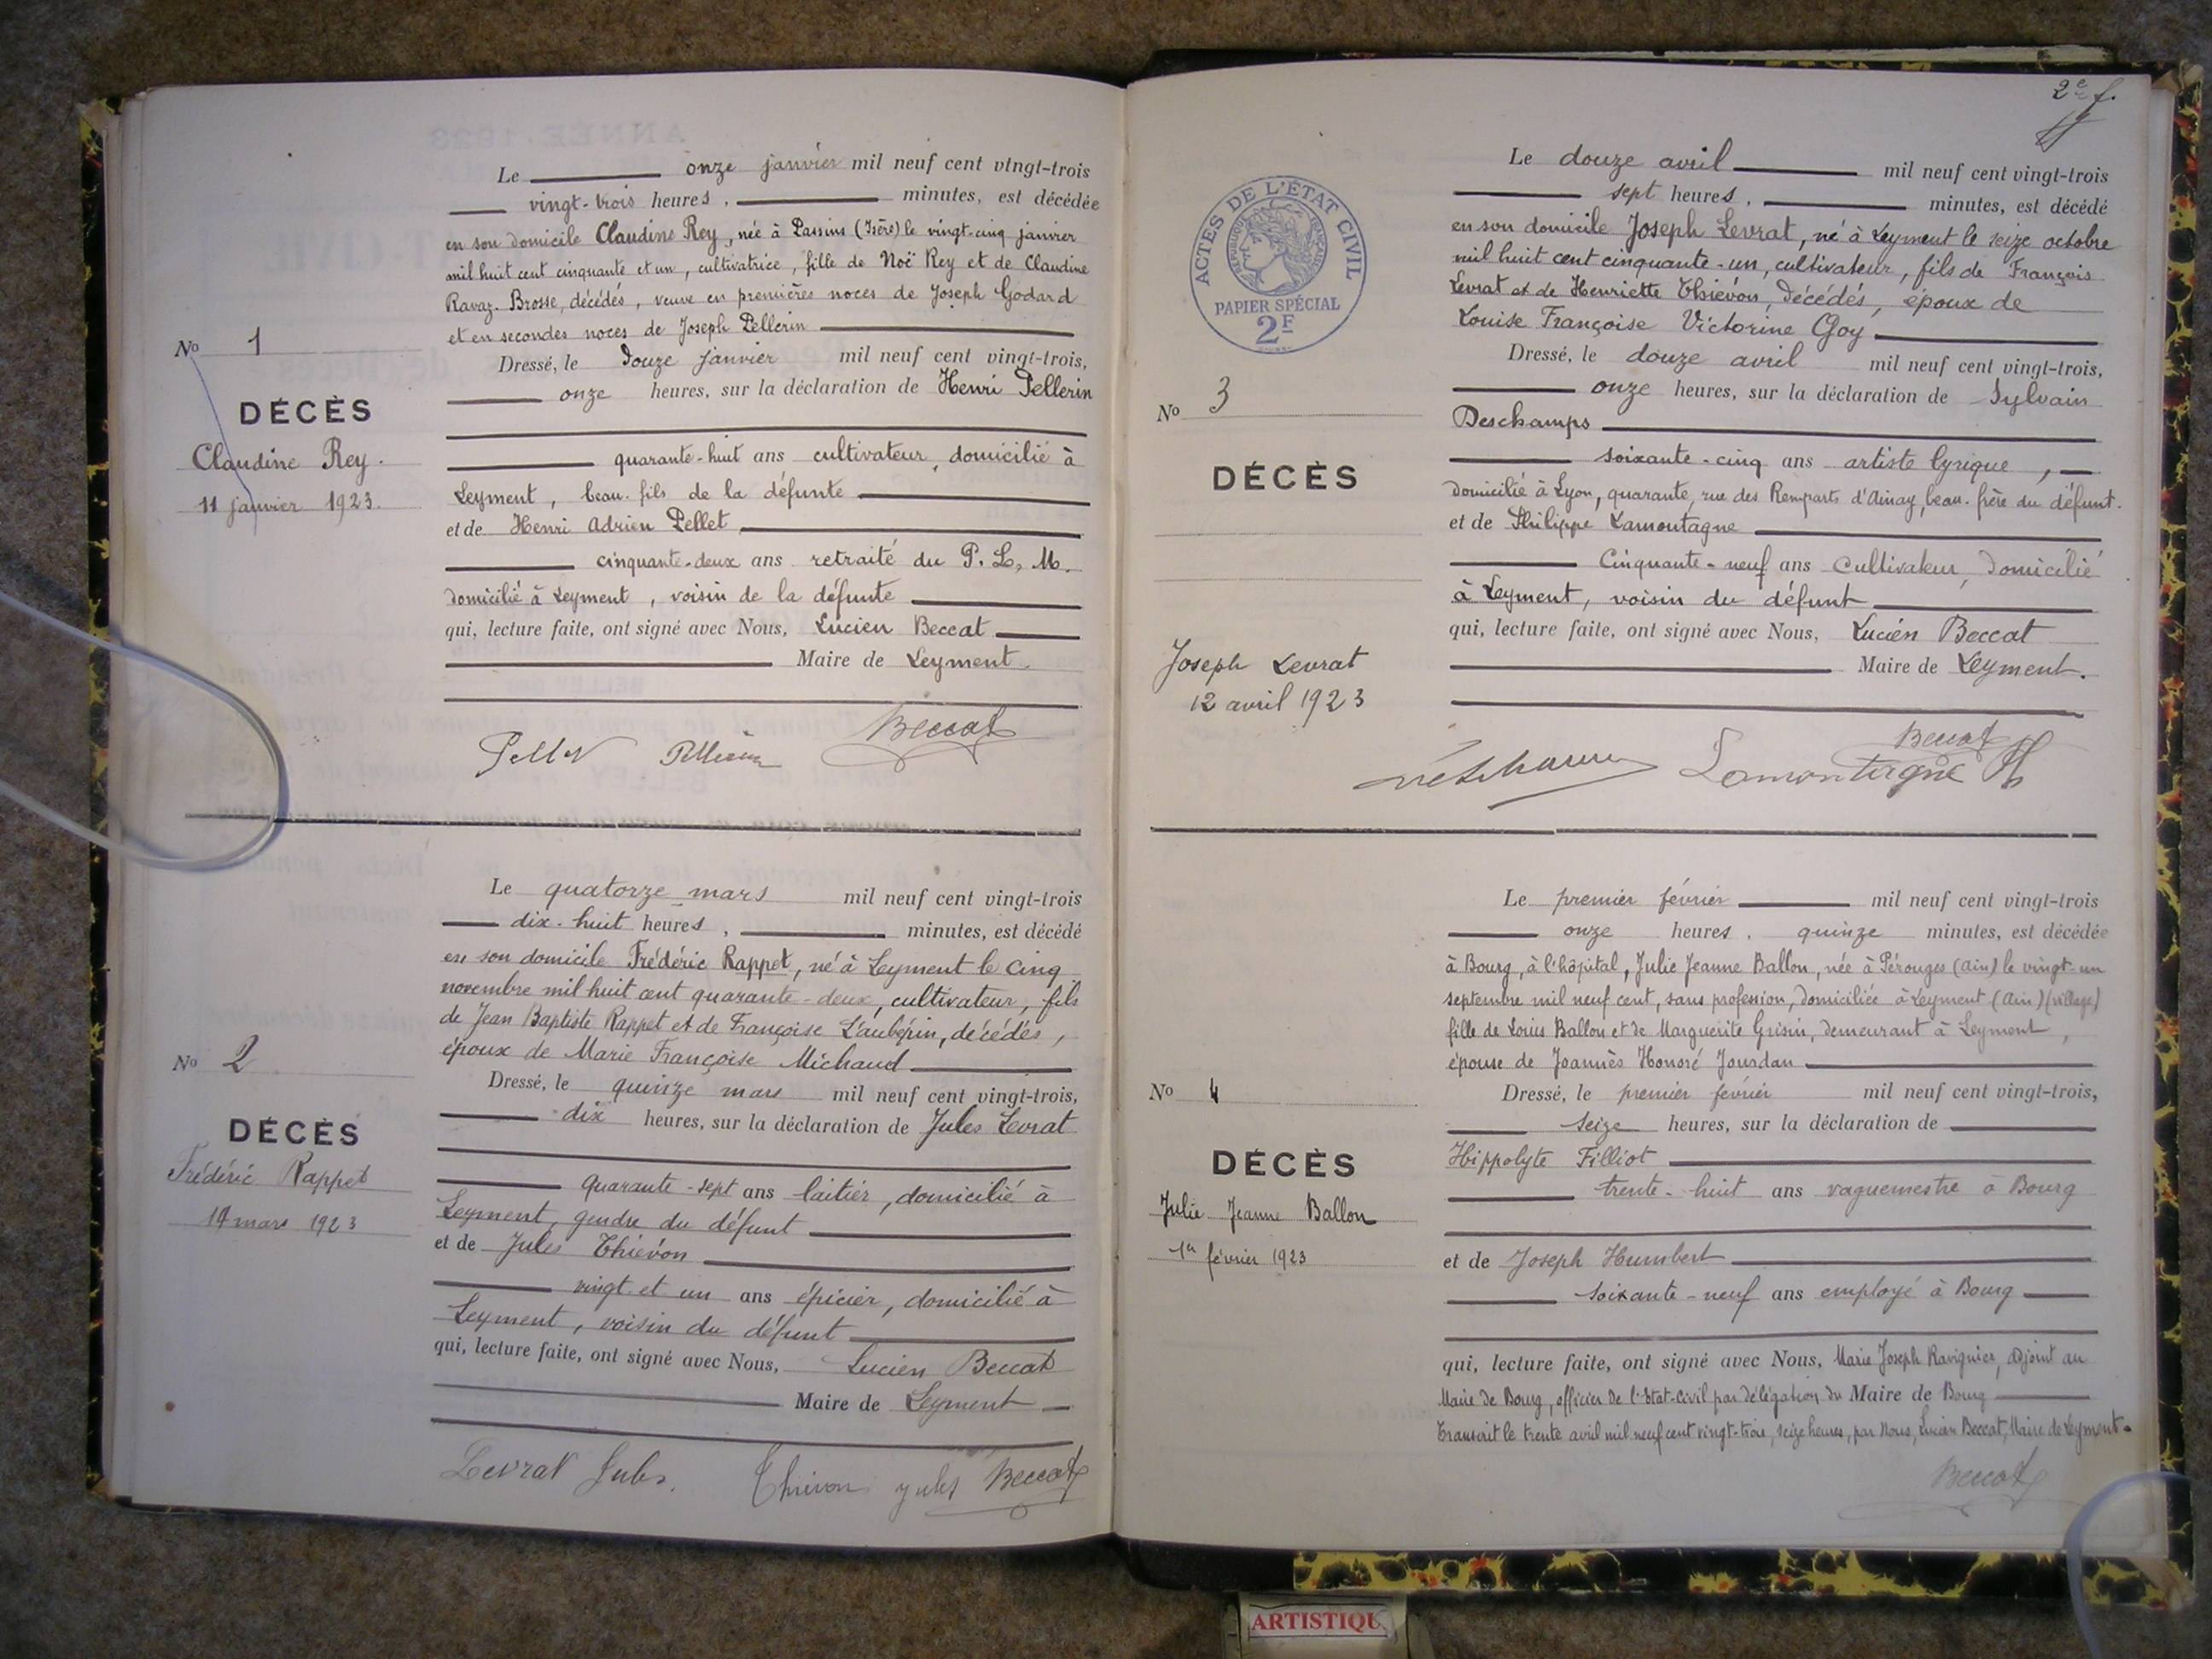 Le onze janvier mil neuf cent vingt-trois
vingt-trois heures, minutes, est décédée
en son domicile Claudine Rey, née à Passins (Isère) le vingt-cinq janvier
mil huit cent cinquante et un, cultivatrice, fille de Noë Rey et de Claudine
Ravaz-Brosse, décédés, veuve en premières noces de Joseph Godard
et en secondes noces de Joseph Pellerin
No 1
DÉCÈS
Claudine Rey.
11 janvier 1923.
Dressé, le douze janvier mil neuf cent vingt-trois,
onze heures, sur la déclaration de Henri Pellerin
quarante-huit ans cultivateur, domicilié à
Leyment, beau-fils de la défunte
et de Henri Adrien Pellet
cinquante-deux ans retraité du P. L. M.
domicilié à Leyment, voisin de la défunte
qui, lecture faite, ont signé avec Nous, Lucien Beccat
Maire de Leyment
Pellet Pellerin Beccat
Le quatorze mars mil neuf cent vingt-trois
dix-huit heures, minutes, est décédé
en son domicile Frédéric Rappet, né à Leyment le cinq
novembre mil huit cent quarante-deux, cultivateur, fils
de Jean Baptiste Rappet et de Françoise L'aubépin, décédés,
époux de Marie Françoise Michaud
No 2
DÉCÈS
Frédéric Rappet
14 mars 1923
Dressé, le quinze mars mil neuf cent vingt-trois,
dix heures, sur la déclaration de Jules Levrat
quarante-sept ans laitier, domicilié à
Leyment, gendre du défunt
et de Jules Thiévon
vingt et un ans épicier, domicilié à
Leyment, voisin du défunt
qui, lecture faite, ont signé avec Nous, Lucien Beccat
Maire de Leyment
Levrat Jules. Thievon jules Beccat
2e f.
ACTES DE L'ÉTAT CIVIL
RÉPUBLIQUE FRANÇAISE
PAPIER SPÉCIAL
2F
Le douze avril mil neuf cent vingt-trois
sept heures, minutes, est décédé
en son domicile Joseph Levrat, né à Leyment le seize octobre
mil huit cent cinquante-un, cultivateur, fils de François
Levrat et de Henriette Thiévon, décédés, époux de
Louise Françoise Victorine Goy
No 3
DÉCÈS
Joseph Levrat
12 avril 1923
Dressé, le douze avril mil neuf cent vingt-trois,
onze heures, sur la déclaration de Sylvain
Deschamps
soixante-cinq ans artiste lyrique,
domicilié à Lyon, quarante, rue des Remparts d'Ainay, beau-frère du défunt.
et de Philippe Lamontagne
Cinquante-neuf ans cultivateur, domicilié
à Leyment, voisin du défunt
qui, lecture faite, ont signé avec Nous, Lucien Beccat
Maire de Leyment.
Deschamps Lamontagne Ph Beccat
Le premier février mil neuf cent vingt-trois
onze heures, quinze minutes, est décédée
à Bourg, à l'hôpital, Julie Jeanne Ballon, née à Pérouges (Ain) le vingt-un
septembre mil neuf cent, sans profession, domiciliée à Leyment (Ain) (village)
fille de Louis Ballon et de Marguerite Grisin, demeurant à Leyment,
épouse de Joannès Honoré Jourdan
No 4
DÉCÈS
Julie Jeanne Ballon
1er février 1923
Dressé, le premier février mil neuf cent vingt-trois,
seize heures, sur la déclaration de
Hippolyte Filliot
trente-huit ans vaguemestre à Bourg
et de Joseph Humbert
soixante-neuf ans employé à Bourg
qui, lecture faite, ont signé avec Nous, Marie Joseph Ravignier, adjoint au
Maire de Bourg, officier de l'Etat-Civil par délégation du Maire de Bourg
Transcrit le trente avril mil neuf cent vingt-trois, seize heures, par Nous, Lucien Beccat, Maire de Leyment.
Beccat
ARTISTIQU